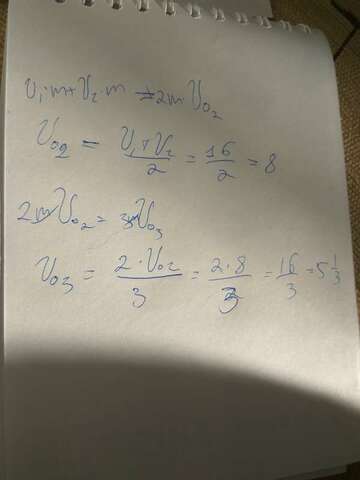 υ₁·m+υ₂·m =2m·υ₀₂
υ₀₂ = (υ₁+υ₂)/2 = 16/2 = 8
2mυ₀₂ = 3mυ₀₃
υ₀₃ = (2·υ₀₂)/3 = (2·8)/3 = 16/3 = 5 1/3